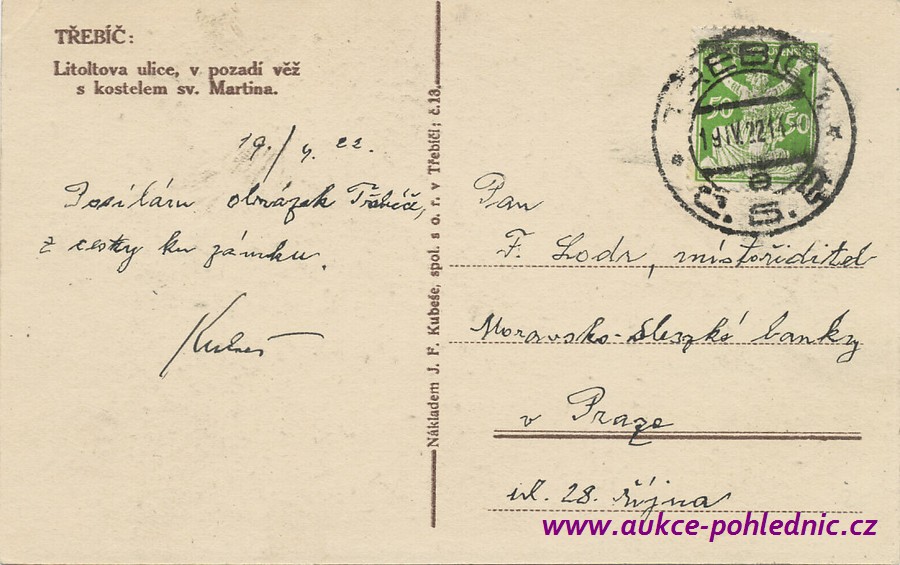 TŘEBÍČ:
Litoltova ulice, v pozadí věž
s kostelem sv. Martina.
19./4. 22.
Posílám obrázek Třebíče,
z cesty ku zámku.
Nákladem J. F. Kubeše, spol. s o. r. v Třebíči; č.13.
TŘEBÍČ
50 50
19.IV.22.14
e
Č.S.R.
Pan
F. Lodr, místořiditel
Moravsko-slezské banky
v Praze
ul. 28. října
www.aukce-pohlednic.cz